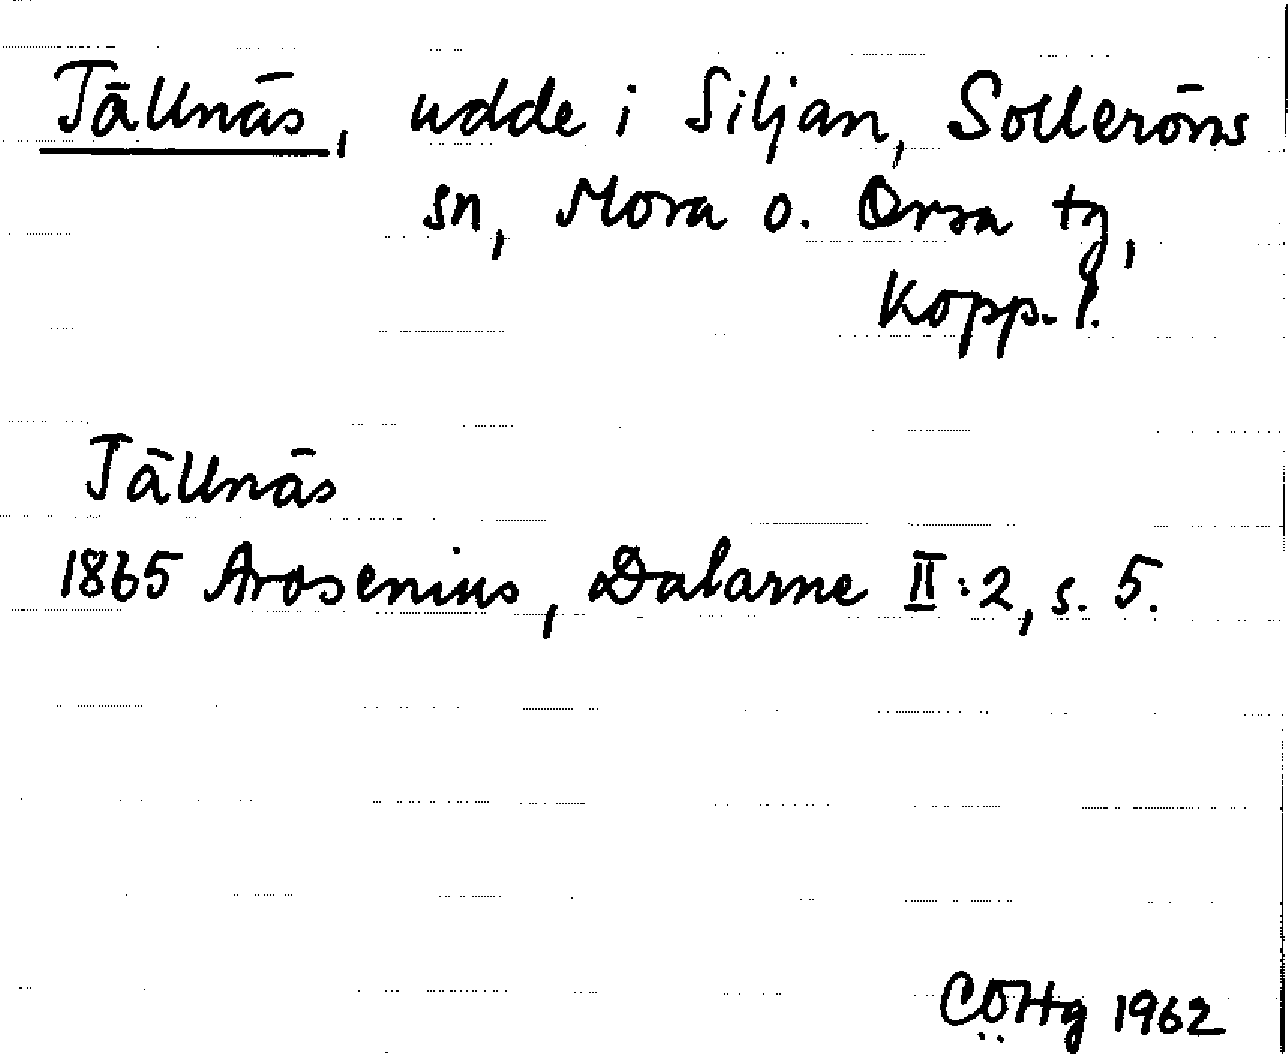 Tällnäs, udde i Siljan, Solleröns
sn, Mora o. Orsa tg,
Kopp. l.
Tällnäs
1865 Arosenius, Dalarne II:2, s. 5.
CÖHg 1962